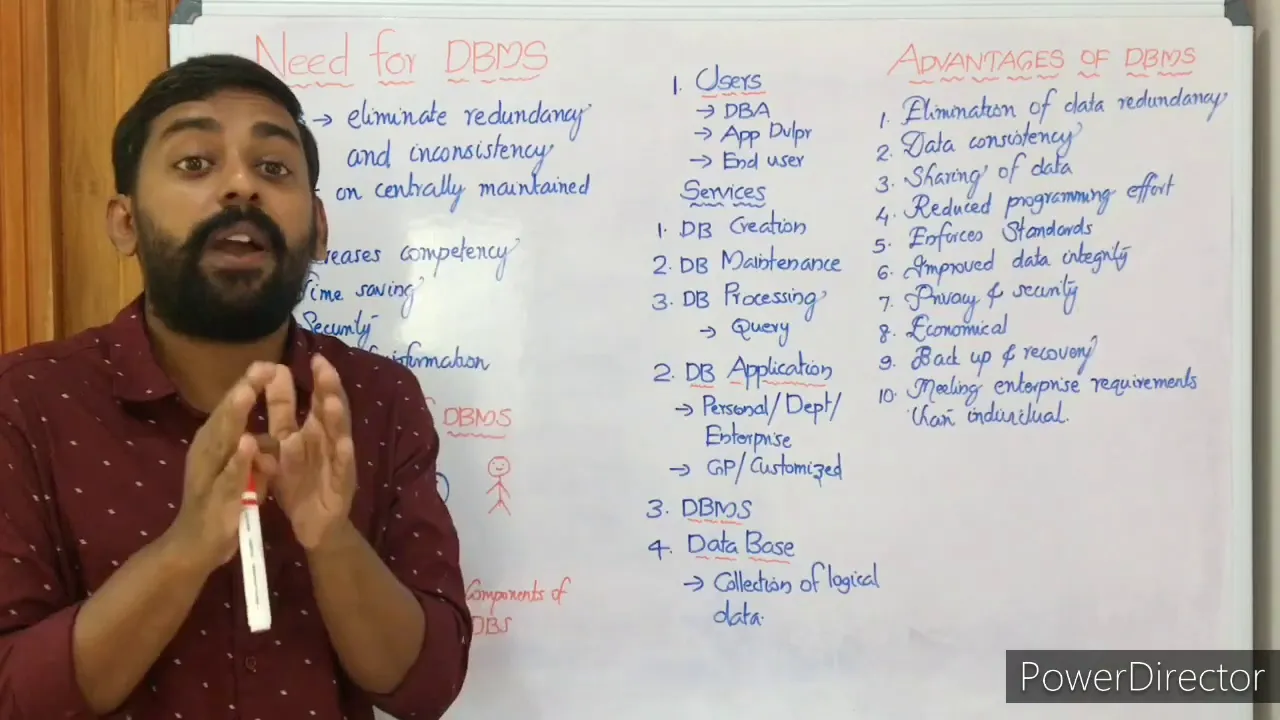 Need for DBMS
→ eliminate redundancy
and inconsistency
on centrally maintained
creases competency
Time saving
Security
information
DBMS
Components of
DBS
1. Users
→ DBA
→ App Dvlpr
→ End user
Services
1. DB Creation
2. DB Maintenance
3. DB Processing
→ Query
2. DB Application
→ Personal/Dept/
Enterprise
→ GP/Customized
3. DBMS
4. Data Base
→ Collection of logical
data.
ADVANTAGES OF DBMS
1. Elimination of data redundancy
2. Data consistency
3. Sharing of data
4. Reduced programming effort
5. Enforces Standards
6. Improved data integrity
7. Privacy & security
8. Economical
9. Back up & recovery
10. Meeting enterprise requirements
than individual.
PowerDirector